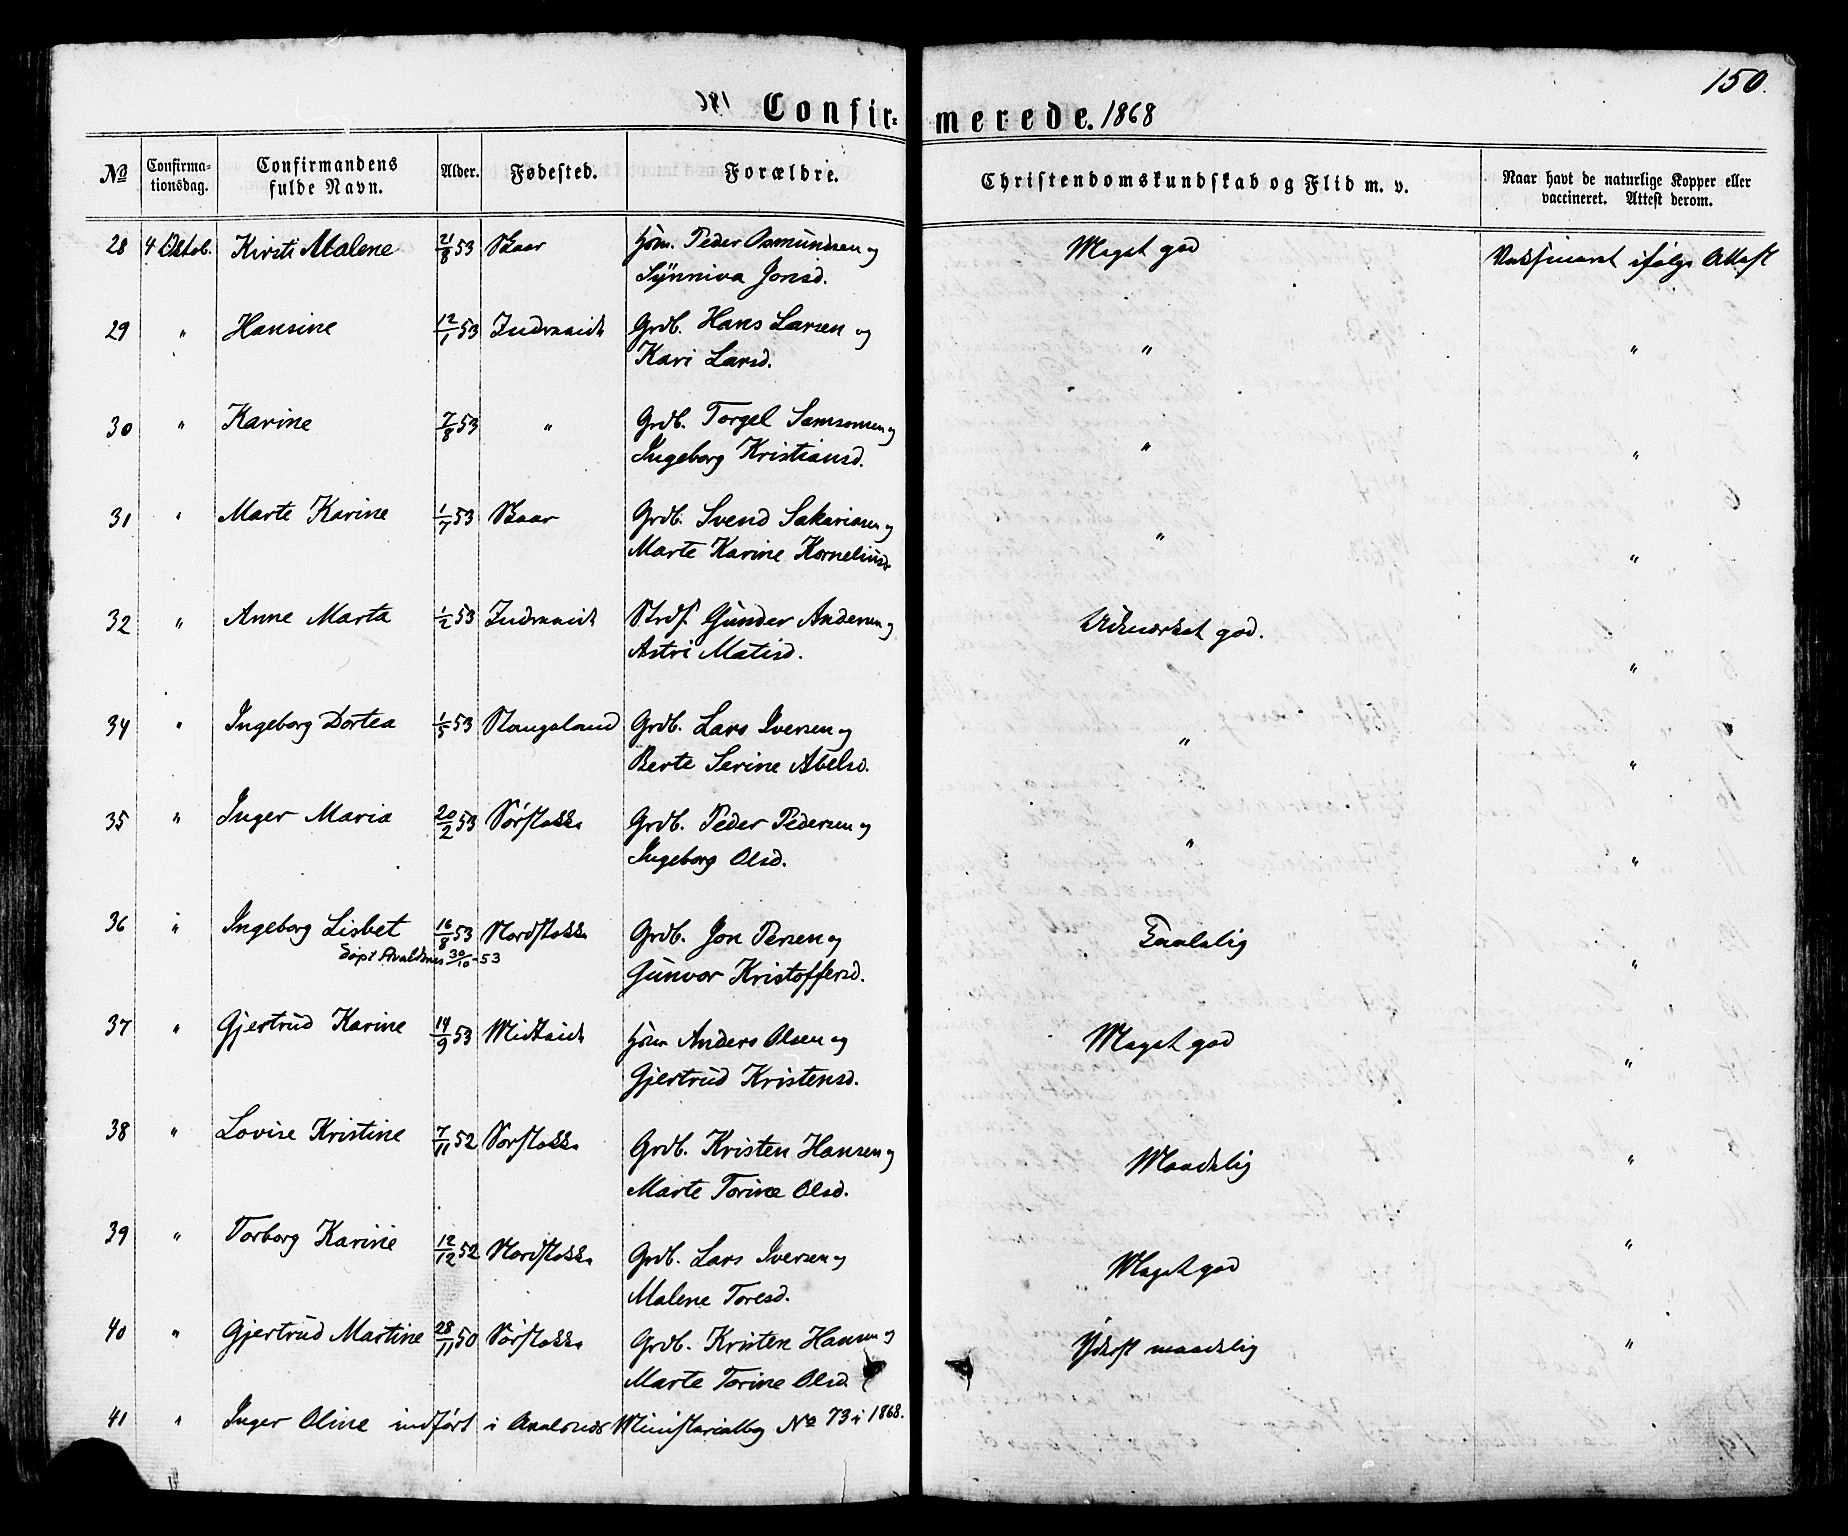 150.
Confir- merede. 1868
№ Confirma-tionsdag. Confirmandens fulde Navn. Alder. Fødested. Forældre. Christendomskundskab og Flid m. v. Naar havt de naturlige Kopper eller vaccineret. Attest derom.
28 4 Oktob. Kirsti Malene 21/8 53 Skaar Hsm. Peder Osmundsen og Meget god Vaksineret ifølge Attest
Synniva Jonsd.
29 " Hansine 12/1 53 Indreeide Grdb. Hans Larsen og " "
Kari Larsd.
30 " Karine 7/8 53 " Grdb. Torgel Samsonsen og " "
Ingeborg Kristiansd.
31 " Marte Karine 1/7 53 Skaar Grdb. Svend Sakariasen og " "
Marte Karine Korneliusd.
32 " Anne Marta 1/2 53 Indreeide Strdf. Gunder Andersen og Udmærket god. "
Astri Matisd.
34 " Ingeborg Dortea 1/5 53 Stangeland Grdb. Lars Iversen og " "
Berte Serine Abelsd.
35 " Inger Maria 20/2 53 Sørstokke Grdb. Peder Pedersen og " "
Ingeborg Olsd.
36 " Ingeborg Lisbet 16/8 53 Nordstokke Grdb. Jon Persen og Taalelig "
Døpt Avaldsnes 30/10-53 Gunvor Kristoffersd.
37 " Gjertrud Karine 14/9 53 Midteide Hsm Anders Olsen og Meget god "
Gjertrud Kristensd.
38 " Lovise Kristine 7/11 52 Sørstokke Grdb. Kristen Hansen og Maadelig "
Marte Torine Olsd.
39 " Torborg Karine 12/12 52 Nordstokke Grdb. Lars Iversen og Meget god "
Malene Toresd.
40 " Gjertrud Martine 28/11 50 Sørstokke Grdb. Kristen Hansen og Yderst maadelig "
Marte Torine Olsd.
41 " Inger Oline indført i Avalsnes Ministerialbog No 73 i 1868.